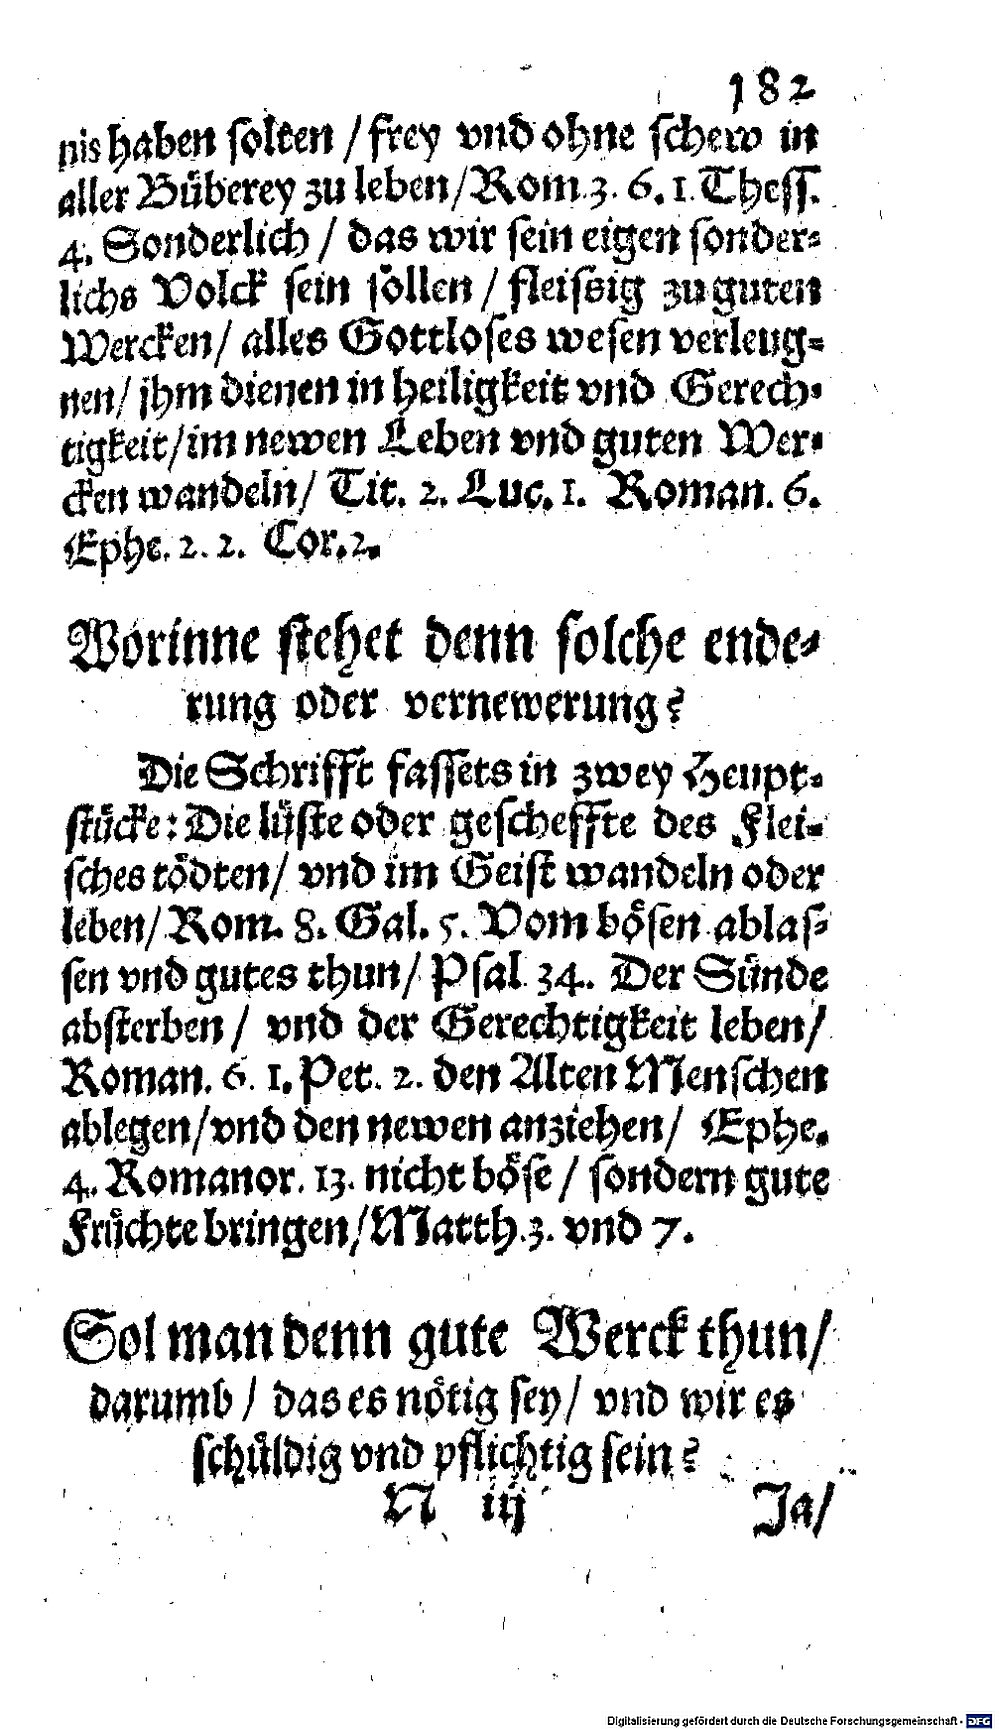 182
nis haben ſolten / frey vnd ohne ſchew in
aller Bűberey zu leben / Rom. 3. 6. 1. Theſſ.
4. Sonderlich / das wir ſein eigen ſonder⸗
lichs Volck ſein ſöllen / fleiſsig zu guten
Wercken / alles Gottloſes weſen verleug⸗
nen / jhm dienen in heiligkeit vnd Gerech⸗
tigkeit / im newen Leben vnd guten Wer⸗
cken wandeln / Tit. 2. Luc. 1. Roman. 6.
Ephe. 2. 2. Cor. 2.
Worinne ſtehet denn ſolche ende⸗
rung oder vernewerung?
Die Schrifft faſſets in zwey Heupt⸗
ſtücke: Die lüſte oder geſcheffte des Flei⸗
ſches tödten / vnd im Geiſt wandeln oder
leben / Rom. 8. Gal. 5. Vom böſen ablaſ⸗
ſen vnd gutes thun / Pſal. 34. Der Sünde
abſterben / vnd der Gerechtigkeit leben /
Roman. 6. 1. Pet. 2. den Alten Menſchen
ablegen / vnd den newen anziehen / Ephe.
4. Romanor. 13. nicht böſe / ſondern gute
Früchte bringen / Matth. 3. vnd 7.
Sol man denn gute Werck thun /
darumb / das es nötig ſey / vnd wir es
ſchüldig vnd pflichtig ſein?
N iij Ja /
Digitalisierung gefördert durch die Deutsche Forschungsgemeinschaft - DFG